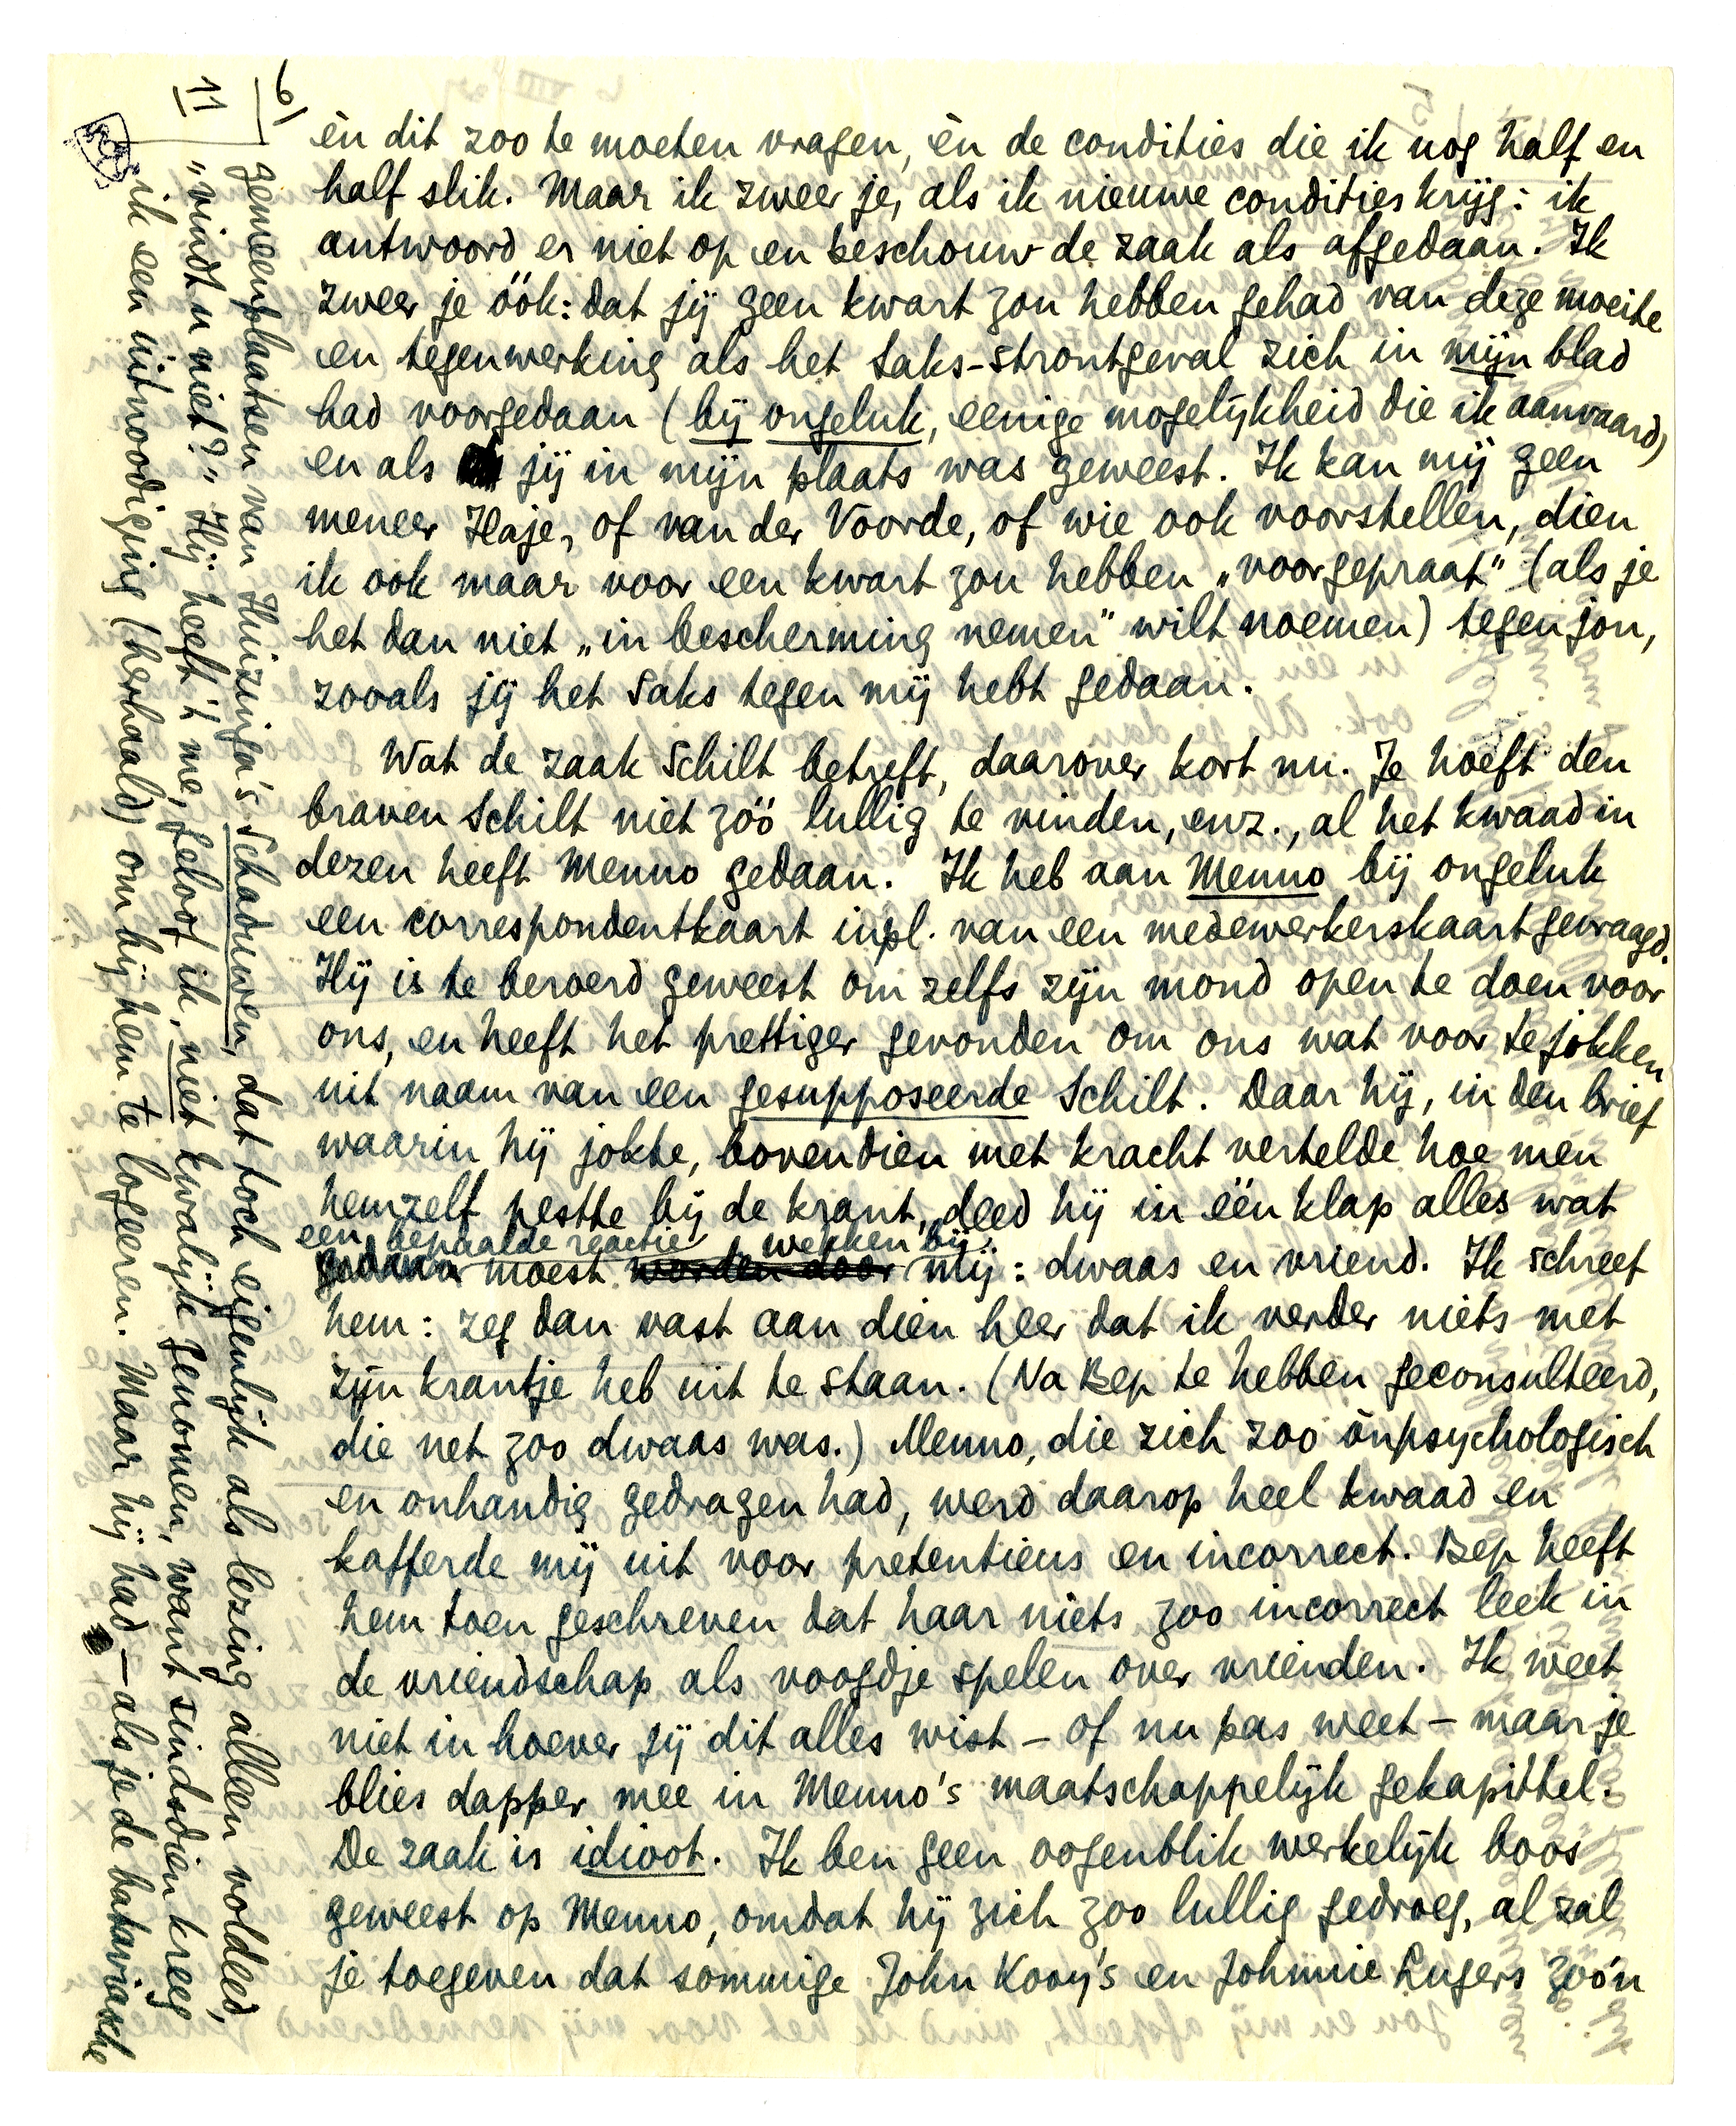 6/
11
èn dit zoo te moeten vragen, èn de condities die ik nog half en
half slik. Maar ik zweer je, als ik nieuwe condities krijg: ik
antwoord er niet op en beschouw de zaak als afgedaan. Ik
zweer je óók: dat jij geen kwart zou hebben gehad van deze moeite
en tegenwerking als het Saks-strontgeval zich in mijn blad
had voorgedaan (bij ongeluk, eenige mogelijkheid die ik aanvaard)
en als jij in mijn plaats was geweest. Ik kan mij geen
meneer Haje, of van der Voorde, of wie ook voorstellen, dien
ik ook maar voor een kwart zou hebben „voorgepraat" (als je
het dan niet „in bescherming nemen" wilt noemen) tegen jou,
zooals jij het Saks tegen mij hebt gedaan.
Wat de zaak Schilt betreft, daarover kort nu. Je hoeft den
braven Schilt niet zóó lullig te vinden, enz., al het kwaad in
dezen heeft Menno gedaan. Ik heb aan Menno bij ongeluk
een correspondentkaart inpl. van een medewerkerskaart gevraagd.
Hij is te beroerd geweest om zelfs zijn mond open te doen voor
ons, en heeft het prettiger gevonden om ons wat voor te jokken
uit naam van een gesupposeerde Schilt. Daar hij, in den brief
waarin hij jokte, bovendien met kracht vertelde hoe men
hemzelf pestte bij de krant, deed hij in één klap alles wat
een bepaalde reactie wekken bij
gedaan moest worden door mij: dwaas en vriend. Ik schreef
hem: zeg dan vast aan dien heer dat ik verder niets met
zijn krantje heb uit te staan. (Na Bep te hebben geconsulteerd,
die net zoo dwaas was.) Menno, die zich zoo ònpsychologisch
en onhandig gedragen had, werd daarop heel kwaad en
kafferde mij uit voor pretentieus en incorrect. Bep heeft
hem toen geschreven dat haar niets zoo incorrect leek in
de vriendschap als voogdje spelen over vrienden. Ik weet
niet in hoever jij dit alles wist – of nu pas weet – maar je
blies dapper mee in Menno's maatschappelijk gekapittel.
De zaak is idioot. Ik ben geen oogenblik werkelijk boos
geweest op Menno, omdat hij zich zoo lullig gedroeg, al zal
je toegeven dat sommige John Kooy's en Johnnie Lugers zóó'n
gemeenplaatsen van Huizinga's Schaduwen, dat toch eigenlijk als lezing alleen voldeed,
„vindt u niet?" Hij heeft 't me, geloof ik, niet kwalijk genomen, want sindsdien kreeg
ik een uitnoodiging (herhaald) om bij hem te logeeren. Maar hij had – als je de bataviasche